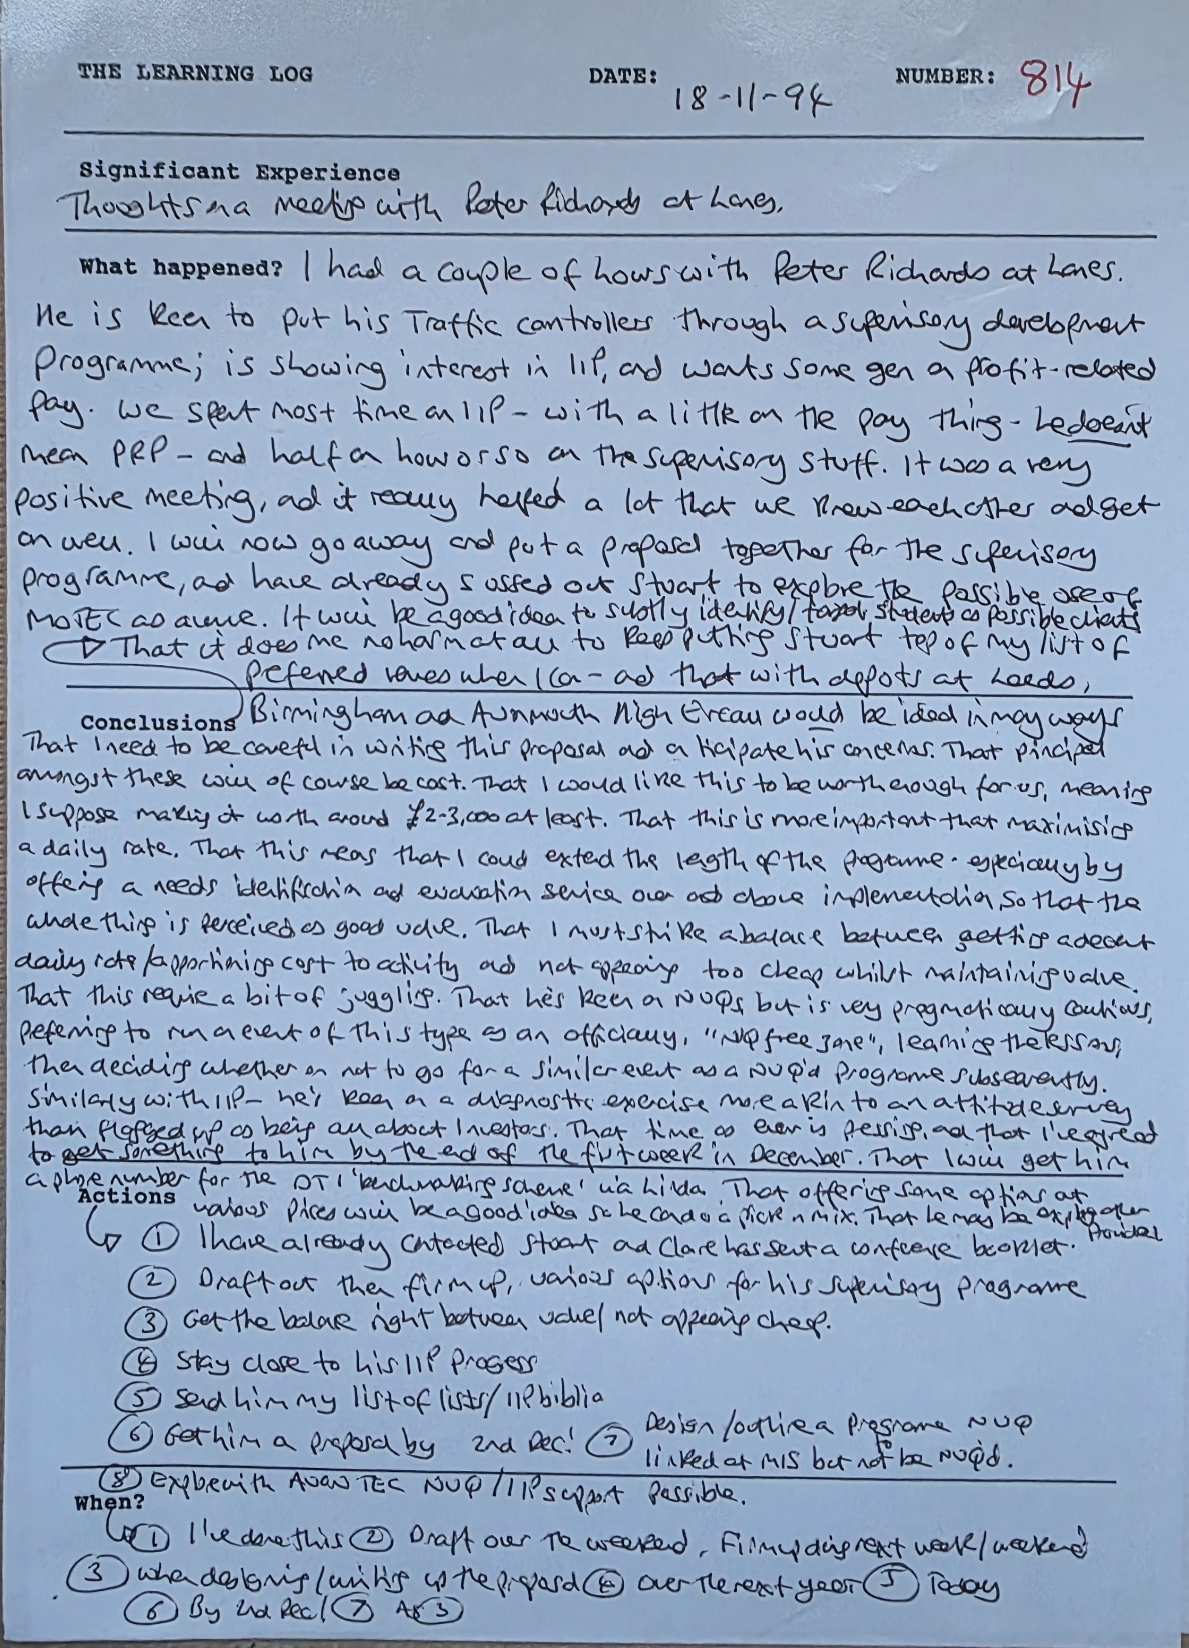 THE LEARNING LOG DATE: 18-11-94 NUMBER: 814
Significant Experience
Thoughts on a meeting with Peter Richards at Lanes.
What happened? I had a couple of hours with Peter Richards at Lanes.
He is keen to put his Traffic controllers through a supervisory development
programme; is showing interest in IIP, and wants some gen on profit-related
pay. We spent most time on IIP - with a little on the pay thing - he doesn't
mean PRP - and half an hour or so on the supervisory stuff. It was a very
positive meeting, and it really helped a lot that we know each other and get
on well. I will now go away and put a proposal together for the supervisory
programme, and have already sussed out Stuart to explore the possible use of
MOTEC as a venue. It will be a good idea to subtly identify/ students as possible clients
That it does me no harm at all to keep putting Stuart top of my list of
preferred venues when I can - and that with depots at Leeds,
Birmingham and Avonmouth High Ercall would be ideal in many ways
Conclusions
That I need to be careful in writing this proposal and anticipate his concerns. That principal
amongst these will of course be cost. That I would like this to be worth enough for us, meaning
I suppose making it worth around £2-3,000 at least. That this is more important that maximising
a daily rate. That this means that I could extend the length of the programme - especially by
offering a needs identification and evaluation service over and above implementation, so that the
whole thing is perceived as good value. That I must strike a balance between getting a decent
daily rate/apportioning cost to activity and not appearing too cheap whilst maintaining value.
That this require a bit of juggling. That he's keen on NVQs, but is very pragmatically cautious,
preferring to run an event of this type as an officially, "NVQ free zone", learning the lessons,
then deciding whether or not to go for a similar event as a NVQ'd programme subsequently.
Similarly with IIP - he's keen on a diagnostic exercise more akin to an attitude survey
than flagged up as being all about Investors. That time as ever is pressing, and that I've agreed
to get something to him by the end of the first week in December. That I will get him
a phone number for the DTI 'benchmarking scheme' via Hilda. That offering some options at
Actions various prices will be a good idea so he can do a pick n mix. That he may be exploring other
provider
① I have already contacted Stuart and Clare has sent a conference booklet.
② Draft out then firm up, various options for his supervisory programme
③ Get the balance right between value/not appearing cheap.
④ Stay close to his IIP progress
⑤ Send him my list of lists/IIP biblio
⑥ Get him a proposal by 2nd Dec! ⑦ Design/outline a programe NVQ
linked at MIS but not to be NVQ'd.
⑧ Explore with AVON TEC NVQ/IIP support possible.
When?
① I've done this ② Draft over the weekend, firm up during next week/weekend
③ When designing/writing up the proposal ④ Over the next year ⑤ Today
⑥ By 2nd Dec! ⑦ As ③